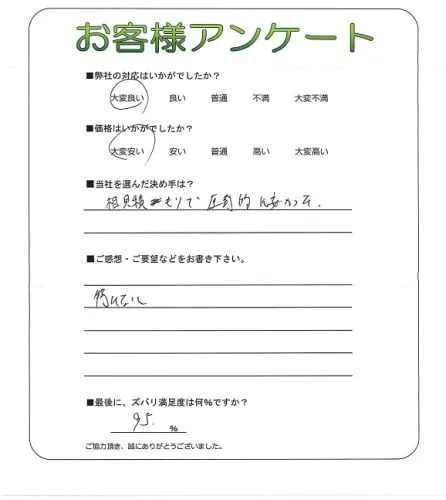 お客様アンケート
■弊社の対応はいかがでしたか?
大変良い 良い 普通 不満 大変不満
■価格はいかがでしたか?
大変安い 安い 普通 高い 大変高い
■当社を選んだ決め手は?
相見積もりで圧倒的に安かった.
■ご感想・ご要望などをお書き下さい。
特になし
■最後に、ズバリ満足度は何%ですか?
95. %
ご協力頂き、誠にありがとうございました。